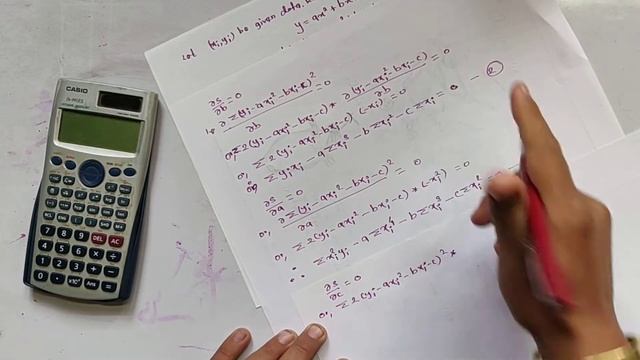 Let (xi, yi) be given data.
y = ax² + bx
∂s/∂b = 0
∂Σ(yi - axi² - bxi - c)²/∂b = 0
or, Σ2(yi - axi² - bxi - c) * ∂(yi - axi² - bxi - c)/∂b = 0
or, Σ2(yi - axi² - bxi - c)(-xi) = 0
or, Σxiyi - aΣxi³ - bΣxi² - cΣxi = 0 - ②
∂s/∂a = 0
or, ∂Σ(yi - axi² - bxi - c)²/∂a = 0
or, Σ2(yi - axi² - bxi - c) * (-xi²) = 0
∴ Σxi²yi - aΣxi⁴ - bΣxi³ - cΣxi²
∂s/∂c = 0
or, Σ2(yi - axi² - bxi - c)² *
CASIO
DEL
AC
7
8
9
4
5
6
1
2
3
0
Ans
=